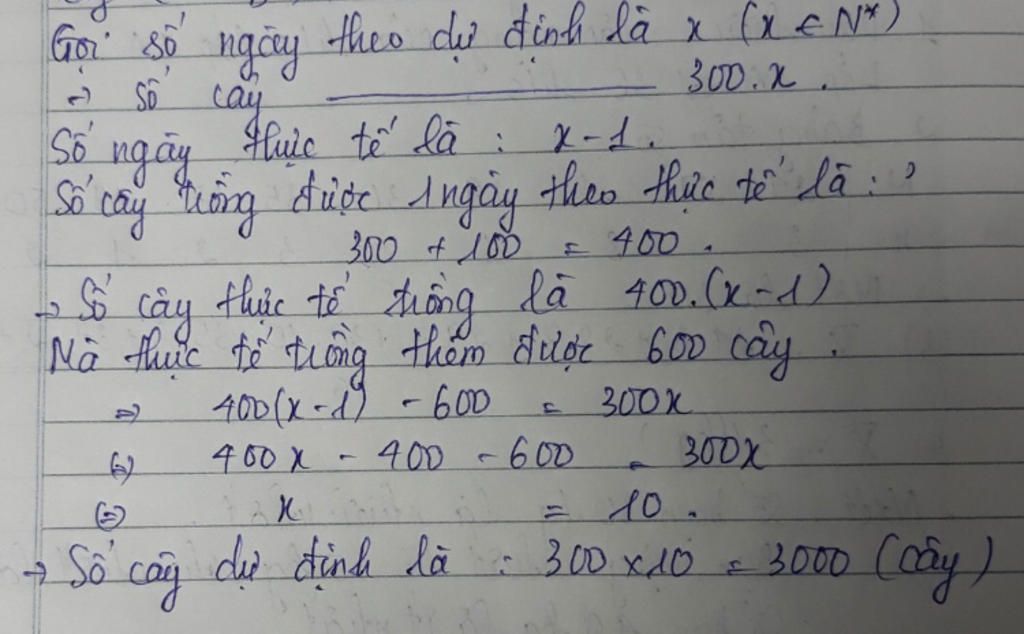 Gọi số ngày theo dự định là x (x ∈ N*)
→ Số cây ——— 300.x.
Số ngày thực tế là : x-1.
Số cây trồng được 1 ngày theo thực tế là :
300 + 100 = 400.
→ Số cây thực tế trồng là 400.(x-1)
Mà thực tế trồng thêm được 600 cây.
=> 400(x-1) - 600 = 300x
(=) 400x - 400 - 600 = 300x
(=) x = 10.
→ Số cây dự định là : 300 x 10 = 3000 (cây)